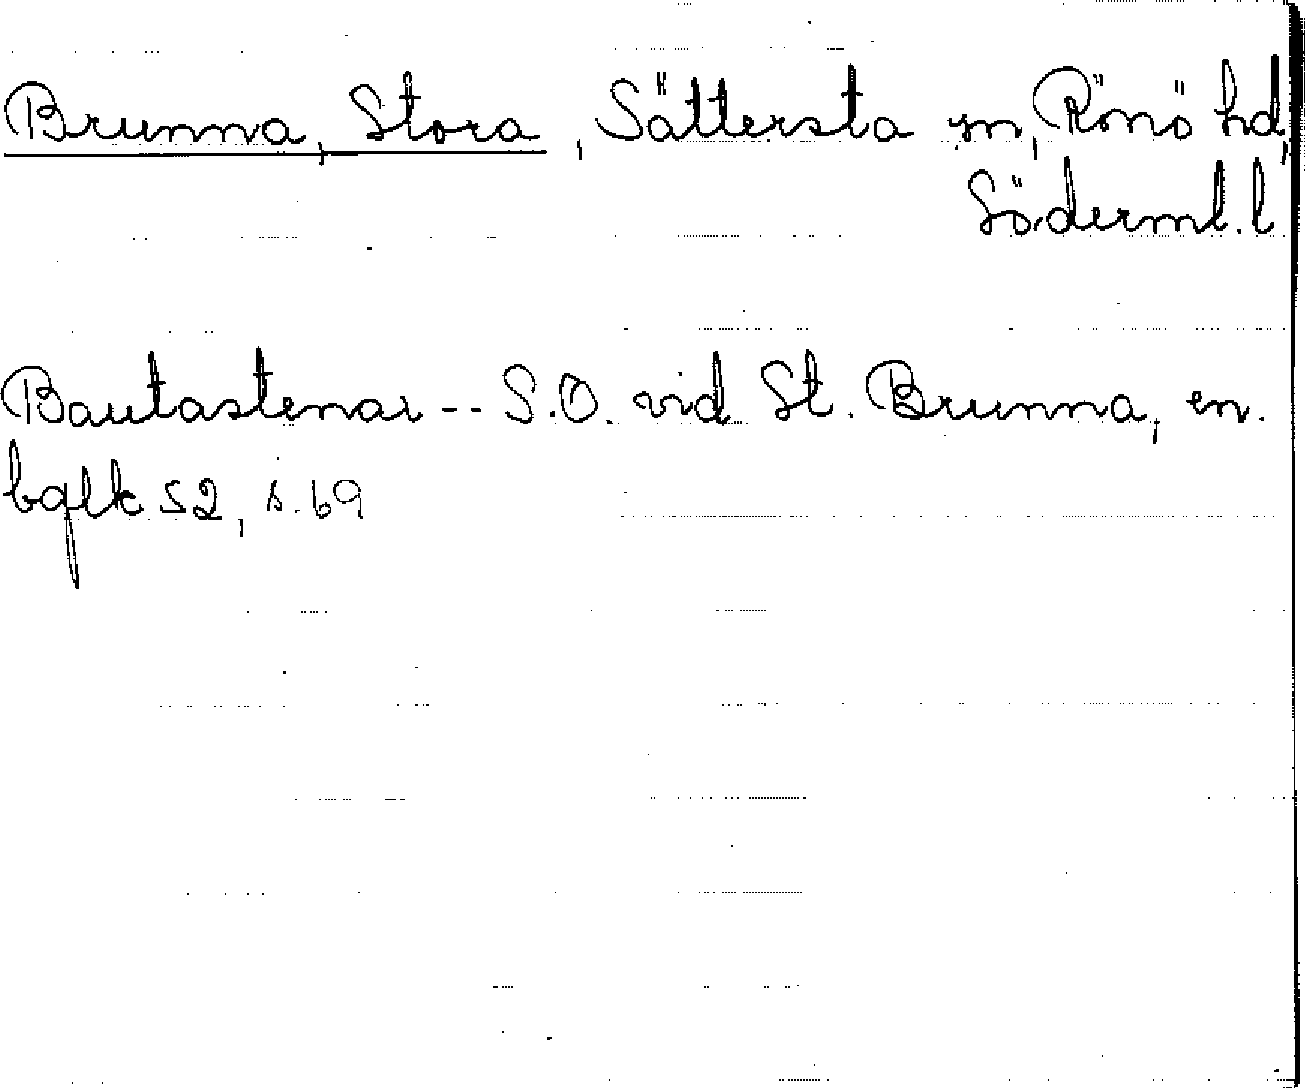 Brunna, Stora, Sättersta sn, Rönö hd,
Söderml. l
Bautastenar -- S.O. vid St. Brunna, en.
bglk 52, s. 69